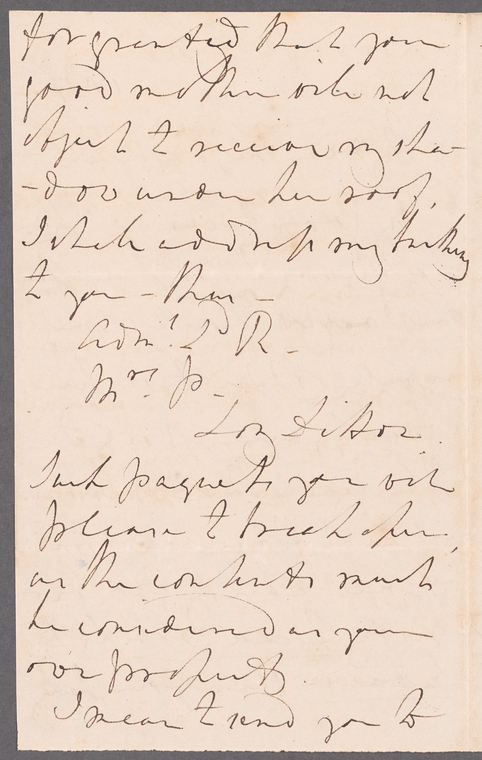 for granted that your
good mother will not
object to receive my sha-
-dow under her roof,
I shall address my
to you - thus -
Adm.l Ld R -
Mrs. P -
Long Ditton.
Such paquets you will
please to break open,
as the contents must
be considered as your
own property.
I mean to send you to